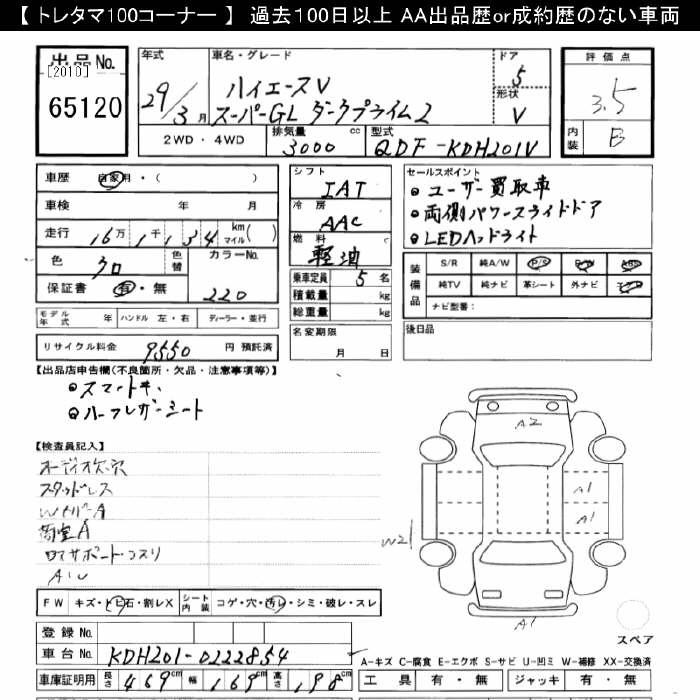 【 トレタマ100コーナー 】 過去100日以上 AA出品歴or成約歴のない車両
出品No. [2010] 65120
年式 29/3月
車名・グレード ハイエースV スーパーGL ダークプライム2
ドア 5
形状 V
2WD・4WD
排気量 3000 cc
型式 QDF-KDH201V
評価点 3.5
内装 B
車歴 自家用・( )
車検 年 月
走行 16万1千134 km マイル( )
色 クロ 色替
カラーNo. 220
保証書 有・無
モデル年式 年 ハンドル 左・右 ディーラー・並行
リサイクル料金 9550 円 預託済
シフト IAT
冷房 AAC
燃料 軽油
乗車定員 5 名
積載量 kg
総重量 kg
名変期限 月 日
セールスポイント
●ユーザー買取車
●両側パワースライドドア
●LEDヘッドライト
装備品 S/R 純A/W P/S P/W ABS
純TV 純ナビ 革シート 外ナビ エアB
ナビ型番:
後日品
【出品店申告欄(不良箇所・欠品・注意事項等)】
●スマートキー
●ハーフレザーシート
【検査員記入】
オーディオ欠・穴
スタッドレス
WイパーA
荷室A
ロアサポート・コスリ
FW キズ・トビ石・割レX シート内装 コゲ・穴・汚レ・シミ・破レ・スレ
登録No.
車台No. KDH201-0222854
車庫証明用 長さ 469cm 幅 169cm 高さ 198cm
A2
A1
A1
W21
A1
スペア
A-キズ C-腐食 E-エクボ S-サビ U-凹ミ W-補修 XX-交換済
工具 有・無 ジャッキ 有・無